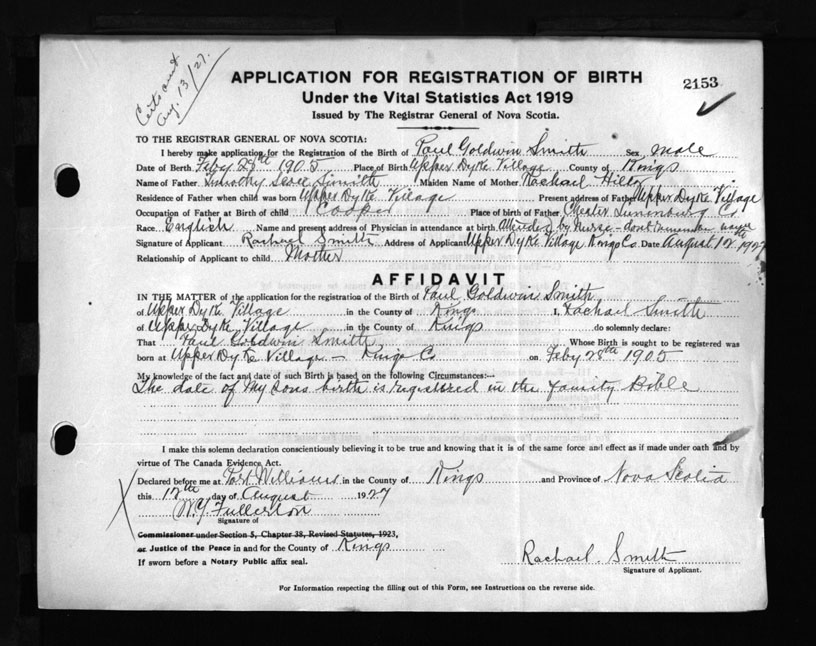 Certs sent
Aug. 13/27.
APPLICATION FOR REGISTRATION OF BIRTH
2153
Under the Vital Statistics Act 1919
Issued by The Registrar General of Nova Scotia.
TO THE REGISTRAR GENERAL OF NOVA SCOTIA:
I hereby make application for the Registration of the Birth of Paul Goldwin Smith Sex male
Date of Birth Feby 28th 1905 Place of Birth Upper Dyke Village County of Kings
Name of Father Smith Maiden Name of Mother Rachael Hiltz
Residence of Father when child was born Upper Dyke Village Present address of Father Upper Dyke Village
Occupation of Father at Birth of child Cooper Place of birth of Father Chester Lunenburg Co
Race English Name and present address of Physician in attendance at birth Attended by Nurse - dont remember name
Signature of Applicant Rachael Smith Address of Applicant Upper Dyke Village Kings Co. Date August 12th 1927
Relationship of Applicant to child Mother
AFFIDAVIT
IN THE MATTER of the application for the registration of the Birth of Paul Goldwin Smith
of Upper Dyke Village in the County of Kings I, Rachael Smith
of Upper Dyke Village in the County of Kings do solemnly declare:
That Paul Goldwin Smith Whose Birth is sought to be registered was
born at Upper Dyke Village - Kings Co on Feby 28th 1905
My knowledge of the fact and date of such Birth is based on the following Circumstances:—
The date of My sons birth is registered in the family Bible
I make this solemn declaration conscientiously believing it to be true and knowing that it is of the same force and effect as if made under oath and by
virtue of The Canada Evidence Act.
Declared before me at Port Williams in the County of Kings and Province of Nova Scotia
this 12th day of August 1927
W.Y. Fullerton
Signature of
Commissioner under Section 5, Chapter 38, Revised Statutes, 1923,
or Justice of the Peace in and for the County of Kings
If sworn before a Notary Public affix seal.
Rachael Smith
Signature of Applicant.
For Information respecting the filling out of this Form, see Instructions on the reverse side.